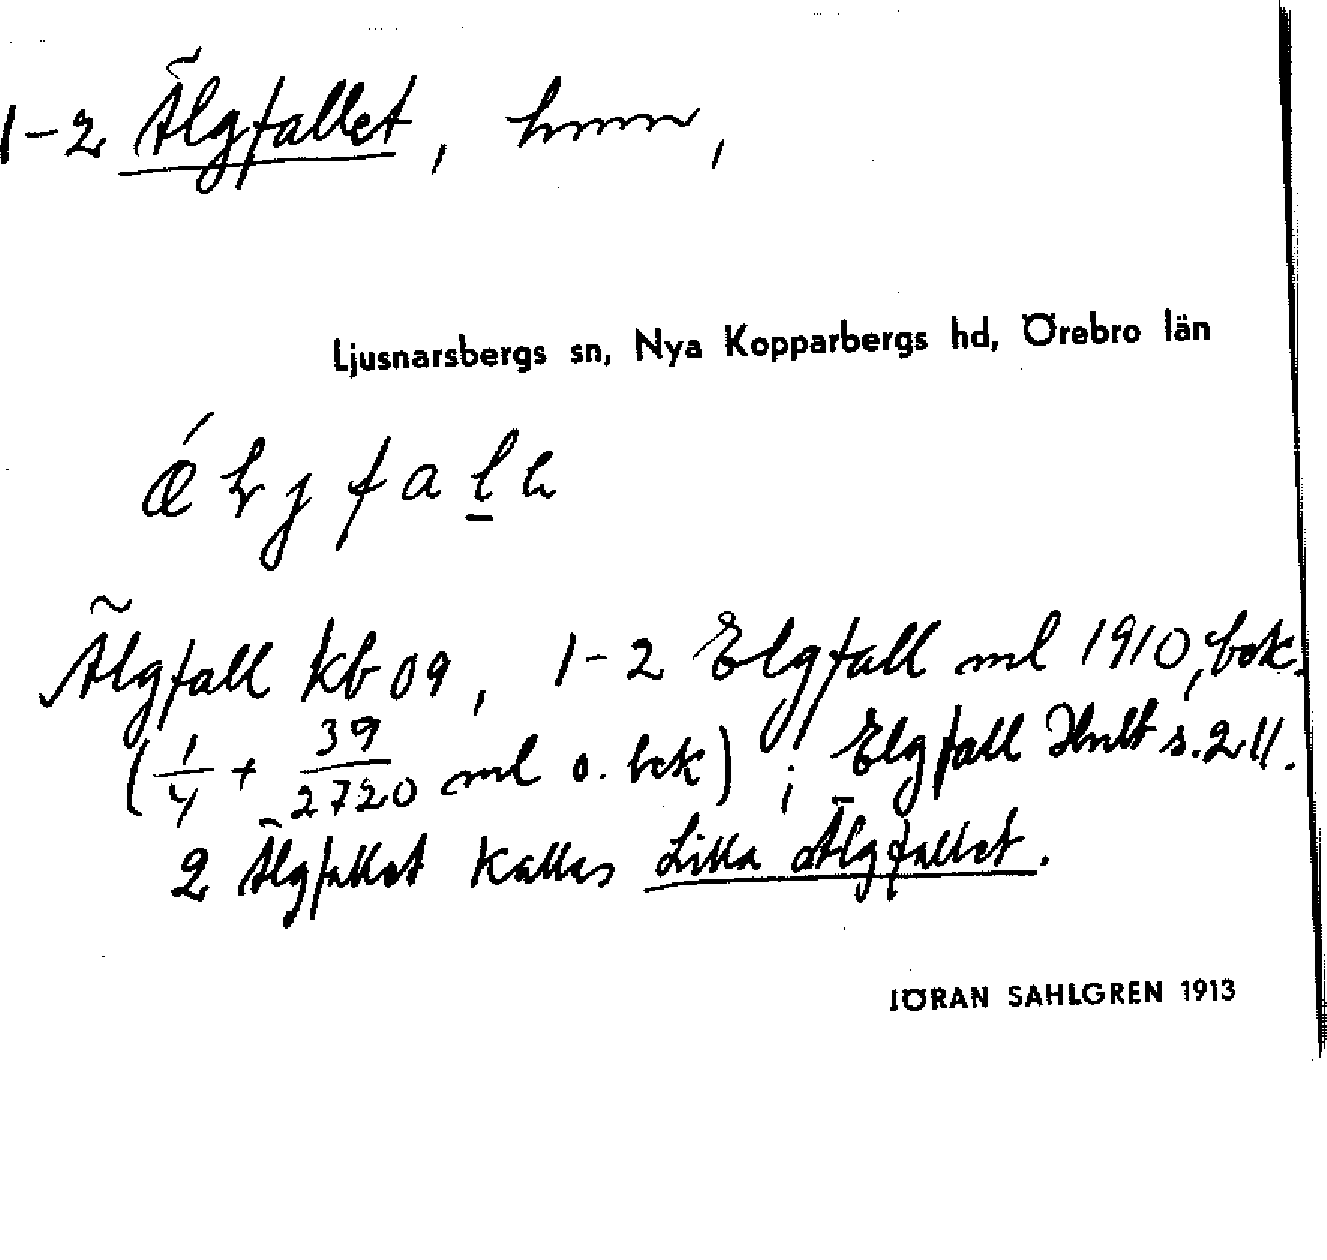 1-2 Älgfallet, hmn,
Ljusnarsbergs sn, Nya Kopparbergs hd, Örebro län
Älgfall Kb 09, 1-2 Elgfall ml 1910, bok.
(1/4 + 39/2720 ml o. bek); Elgfall Hult s. 211.
2 Älgfallet kallas Lilla Älgfallet.
JÖRAN SAHLGREN 1913